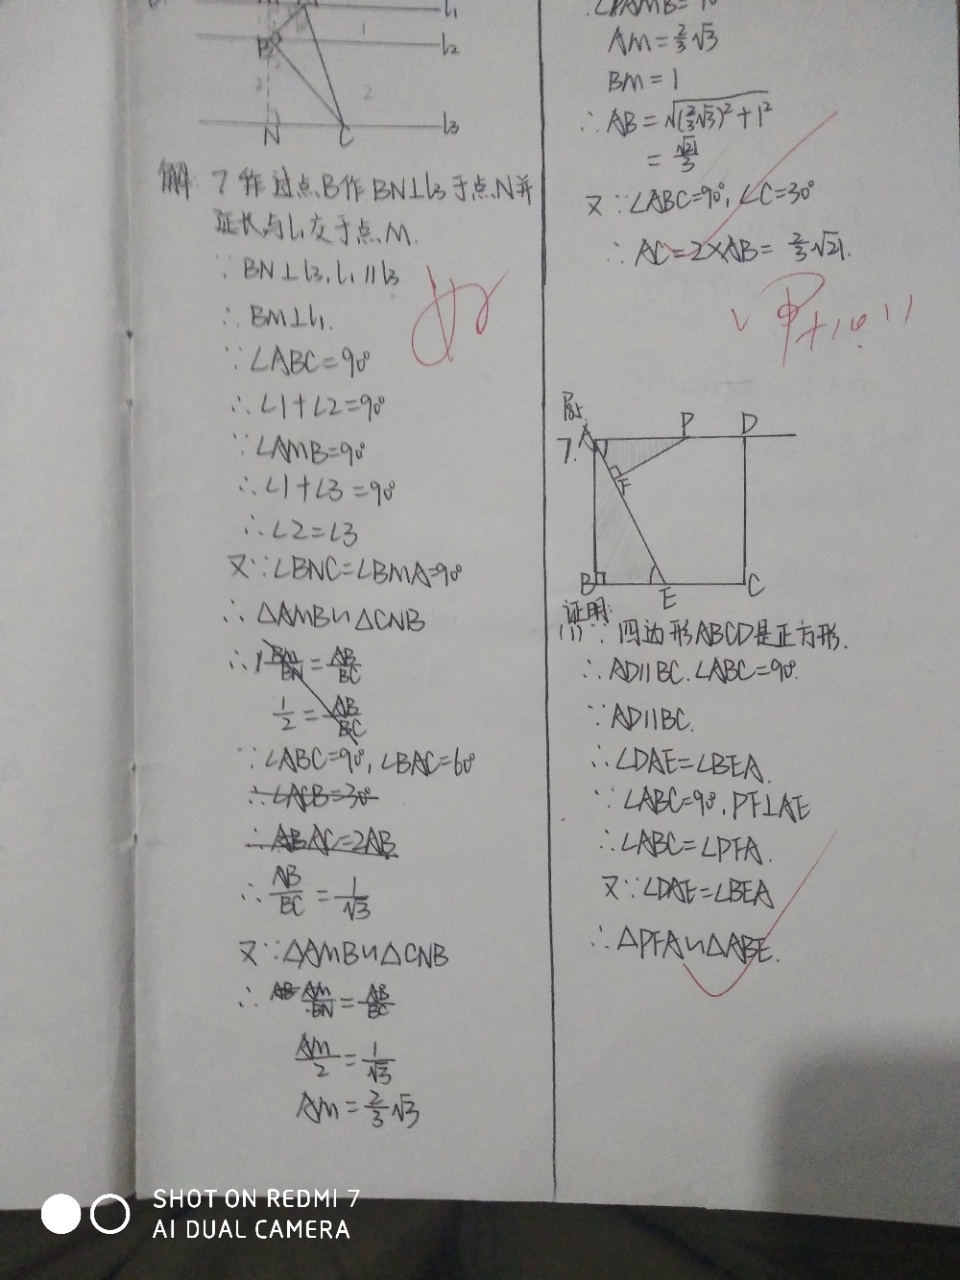 l₁
B
1
l₂
2
2
N
C
l₃
解: 7 作过点B作BN⊥l₃于点N并
延长与l₁交于点M.
∵BN⊥l₃, l₁∥l₃
∴BM⊥l₁.
∵∠ABC=90°
∴∠1+∠2=90°
∵∠AMB=90°
∴∠1+∠3=90°
∴∠2=∠3
又∵∠BNC=∠BMA=90°
∴△AMB∽△CNB
∴ BM/BN = AB/BC
1/2 = AB/BC
∵∠ABC=90°, ∠BAC=60°
∴∠ACB=30°
∴AB AC=2AB
∴ AB/BC = 1/√3
又∵△AMB∽△CNB
∴ AB AM/BN = AB/BC
AM/2 = 1/√3
AM = 2/3 √3
AM = 2/3 √3
BM = 1
∴AB = √((2/3 √3)² + 1²)
= √21/3
又∵∠ABC=90°, ∠C=30°
∴AC=2×AB= 2/3 √21.
7.
A
P
D
F
B
E
C
证明:
(1)∵四边形ABCD是正方形.
∴AD∥BC.∠ABC=90°.
∵AD∥BC.
∴∠DAE=∠BEA.
∵∠ABC=90°, PF⊥AE
∴∠ABC=∠PFA.
又∵∠DAE=∠BEA
∴△PFA∽△ABE.
SHOT ON REDMI 7
AI DUAL CAMERA